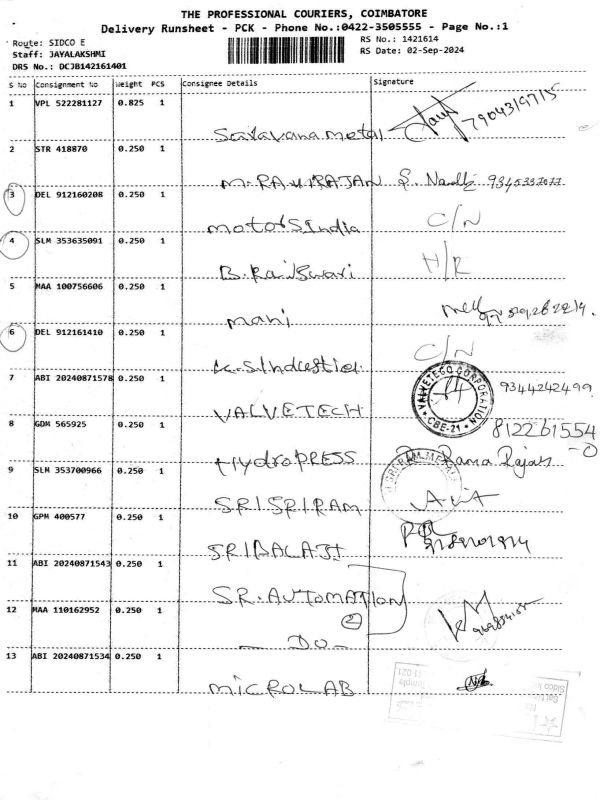 THE PROFESSIONAL COURIERS, COIMBATORE
Delivery Runsheet - PCK - Phone No.:0422-3505555 - Page No.:1
Route: SIDCO E
RS No.: 1421614
Staff: JAYALAKSHMI
RS Date: 02-Sep-2024
DRS No.: DCJB142161401
S No Consignment No Weight PCS Consignee Details Signature
1 VPL 522281127 0.825 1
Saravana metal
2 STR 418870 0.250 1
M. RAVIRAJAN
3 DEL 912160208 0.250 1
motorsIndia C/N
4 SLM 353635091 0.250 1
B. Rajiswari H/R
5 MAA 100756606 0.250 1
mani
6 DEL 912161410 0.250 1
C/N
K.SIndusties
7 ABI 20240871578 0.250 1
VALVETECO CORPORATION
CBE-21
9344242499
VALVETECH
8 GDM 565925 0.250 1
812261554
-0
HydroPRESS Rama Rajan
9 SLM 353700966 0.250 1
SRISRIRAM
10 GPM 400577 0.250 1
SRIBALAJI
11 ABI 20240871543 0.250 1
SR.AUTOMATION
2
12 MAA 110162952 0.250 1
- DO -
13 ABI 20240871534 0.250 1
MICROLAB